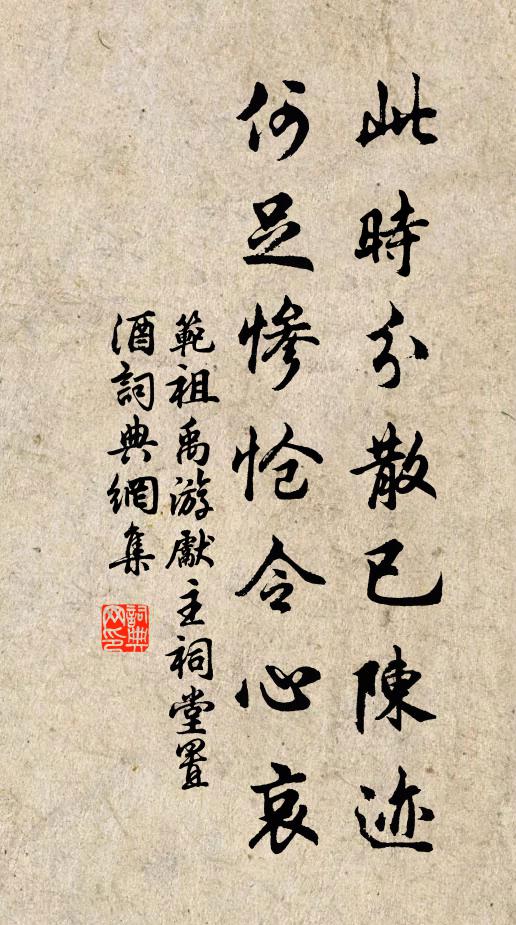 此時分散已陳迹
何足慘怆令心哀
範祖禹游獻主祠堂置
酒詞典網集
詞典
网印